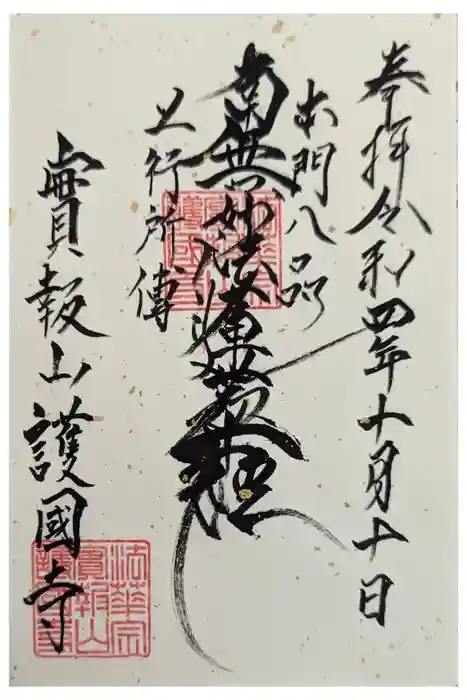 奉拝 令和四年十月十日
本門八品
南無妙法蓮華経
上行所傳
寳報山護國寺
法華宗
寳報山
護國寺